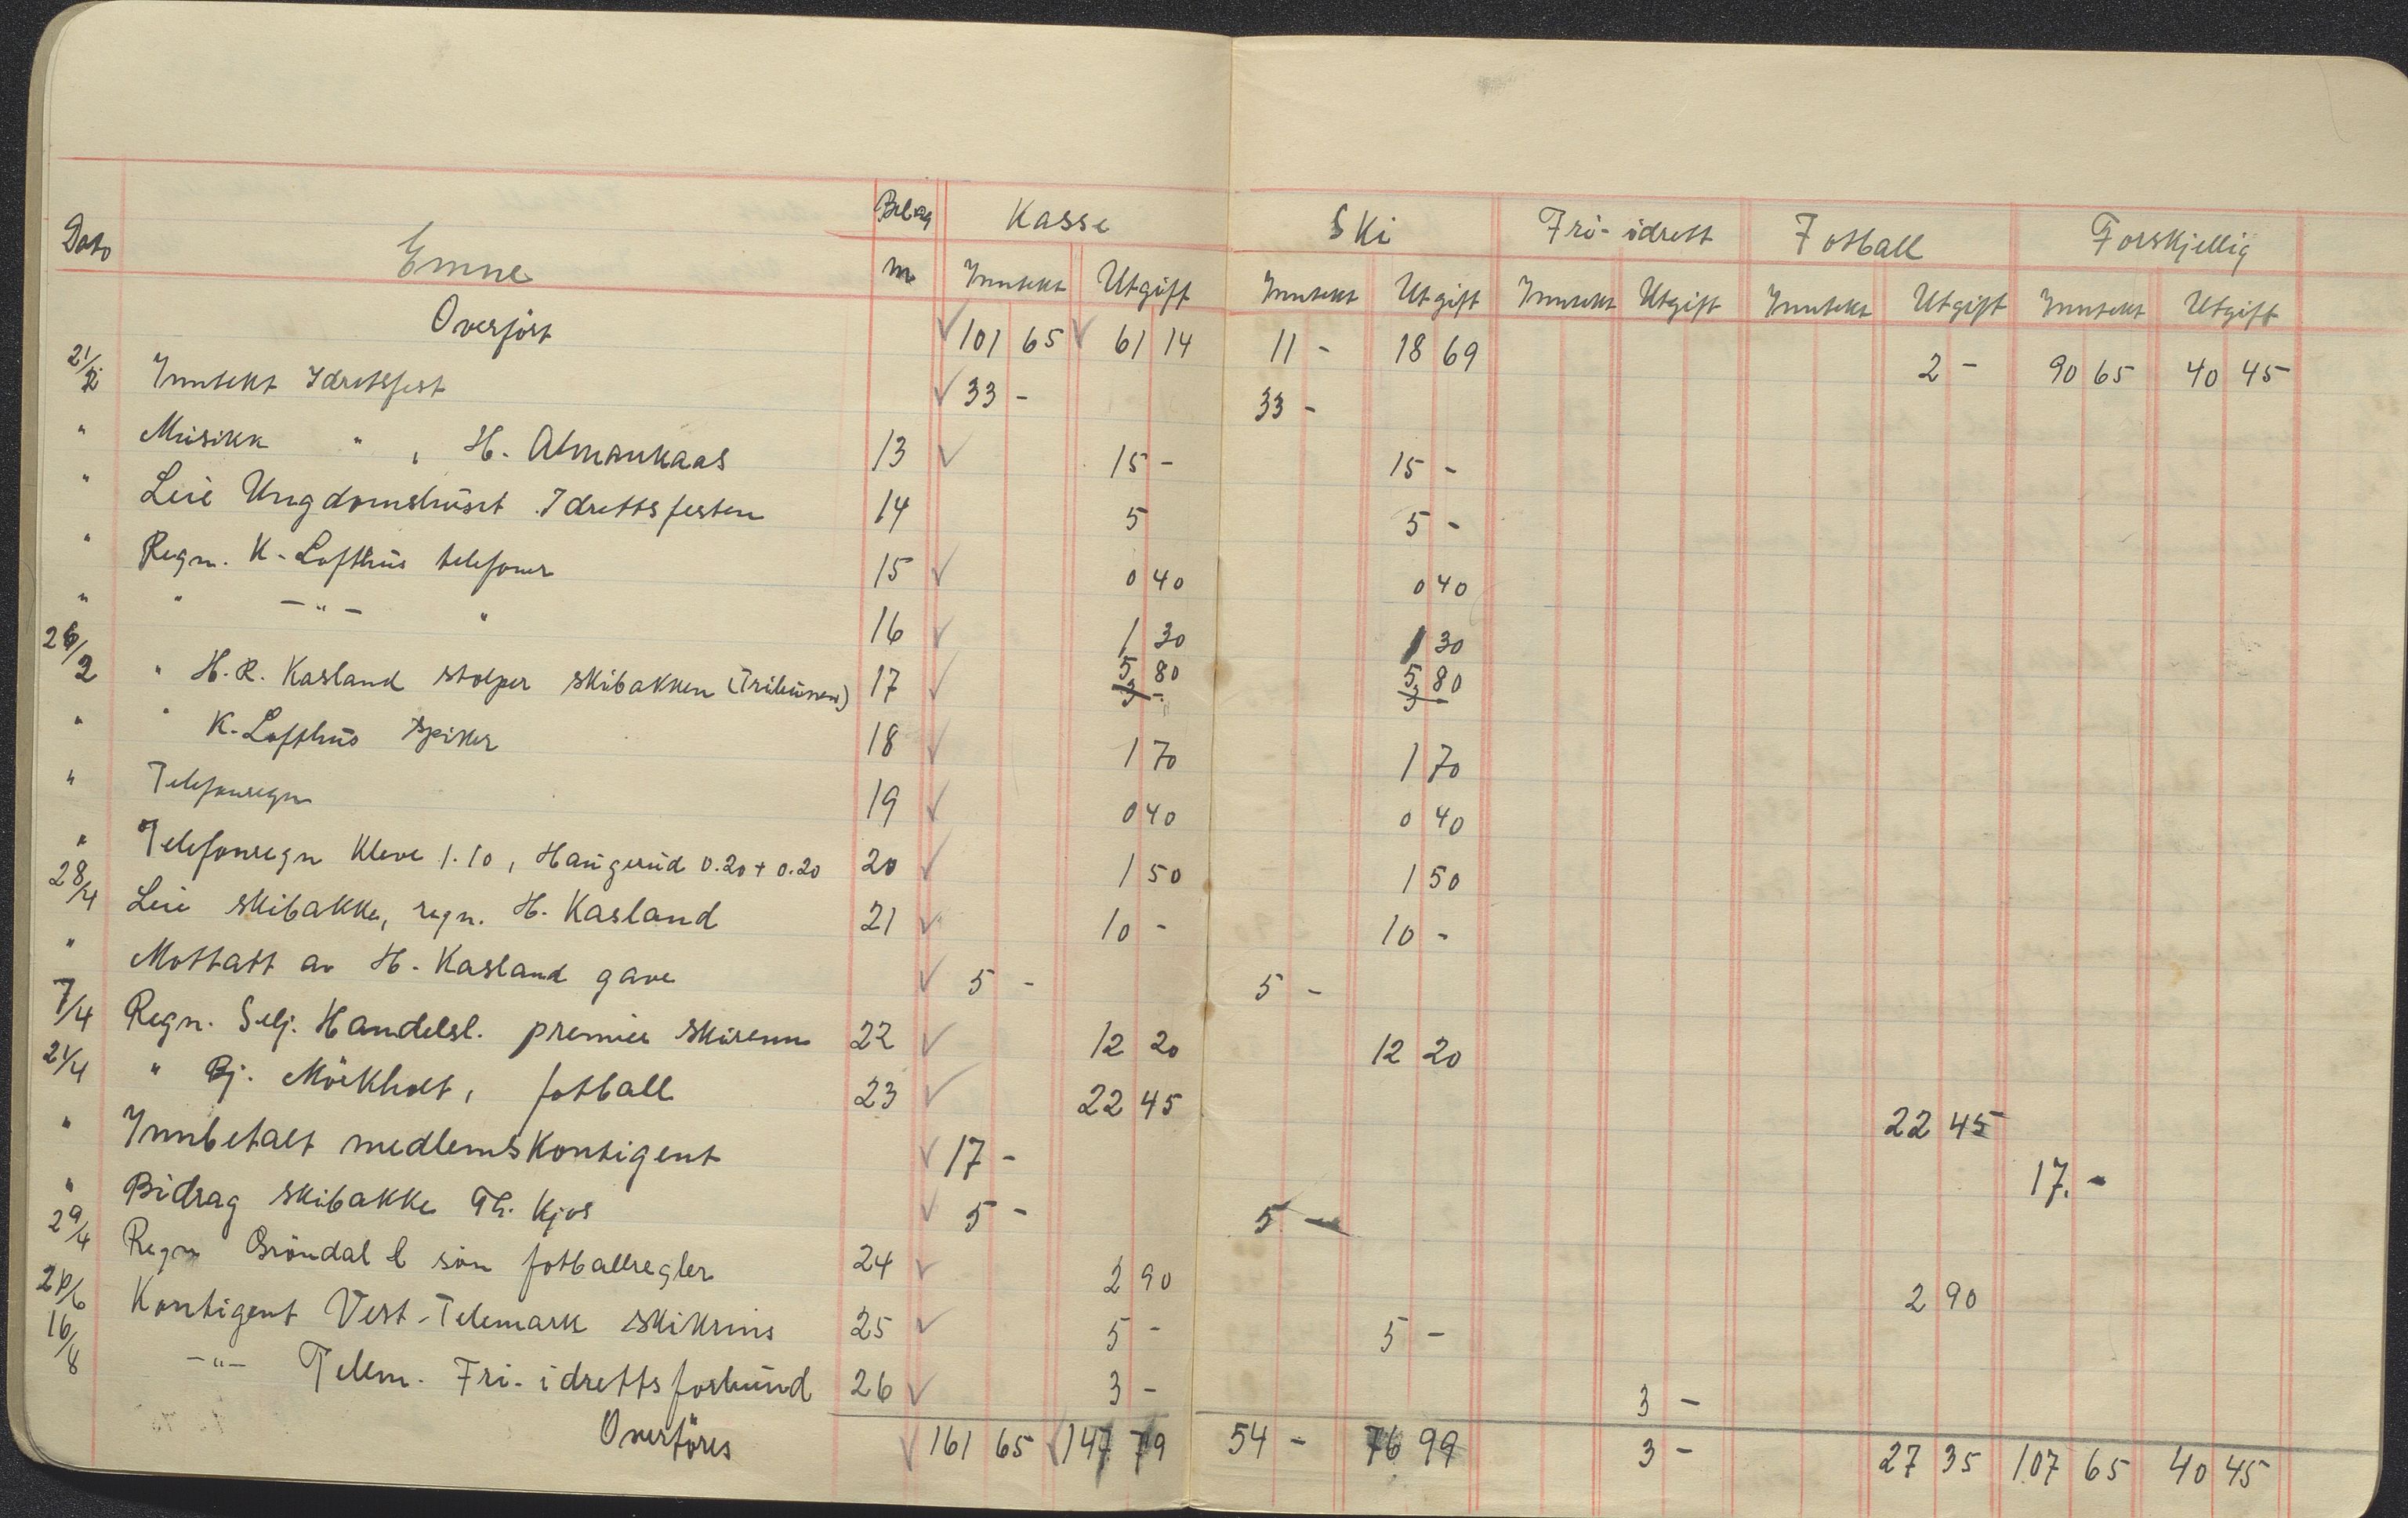 Dato Emne Bilag nr Kasse Ski Fri-idrett Fotball Forskjellig
Inntekt Utgift Inntekt Utgift Inntekt Utgift Inntekt Utgift Inntekt Utgift
Overfört 101 65 61 14 11 - 18 69 2 - 90 65 40 45
21/2 Inntekt Idrettsfest 33 - 33 -
" Musikk " , H. Almankaas 13 15 - 15 -
" Leie Ungdomshuset Idrettsfesten 14 5 5 -
" Regn. K. Lofthus telefoner 15 0 40 0 40
" " -"- " 16 1 30 1 30
26/2 " H. R. Kasland stolper skibakken (Tribunen) 17 5 80 3 - 5 80 3 -
" " K. Lofthus spiker 18 1 70 1 70
" Telefonregn 19 0 40 0 40
" Telefonregn Kleve 1.10, Haugerud 0.20 + 0.20 20 1 50 1 50
28/4 Leie skibakke, regn. H. Kasland 21 10 - 10 -
" Mottatt av H. Kasland gave 5 - 5 -
7/4 Regn. Selj. Handelsl. premier skirenn 22 12 20 12 20
21/4 " Bj. Mörkholt, fotball 23 22 45 22 45
" Innbetalt medlemskontigent 17 - 17. -
" Bidrag skibakke Th. Kjos 5 - 5 -
29/4 Regn Gröndal & sön fotballregler 24 2 90 2 90
Kontigent Vest-Telemark skikrins 25 5 - 5 -
16/8 -"- Telem. Fri-idrettsforbund 26 3 - 3 -
Overföres 161 65 147 79 54 - 76 99 3 - 27 35 107 65 40 45